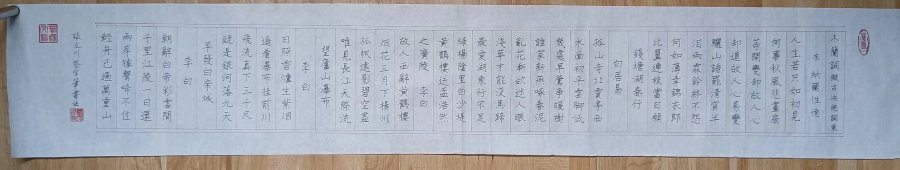 木蘭詞擬古決絕詞柬
友 納蘭性德
人生若只如初見
何事秋風悲畫扇
等閑變卻故人心
卻道故人心易變
驪山語罷清宵半
淚雨霖鈴終不怨
何如薄幸錦衣郎
比翼連枝當日願
錢塘湖春行
白居易
孤山寺北賈亭西
水面初平雲腳低
幾處早鶯爭暖樹
誰家新燕啄春泥
亂花漸欲迷人眼
淺草才能沒馬蹄
最愛湖東行不足
綠楊陰里白沙堤
黃鶴樓送孟浩然
之廣陵 李白
故人西辭黃鶴樓
烟花三月下揚州
孤帆遠影碧空盡
唯見長江天際流
望廬山瀑布
李白
日照香爐生紫烟
遙看瀑布挂前川
飛流直下三千尺
疑是銀河落九天
早發白帝城
李白
朝辭白帝彩雲間
千里江陵一日還
兩岸猿聲啼不住
輕舟已過萬重山